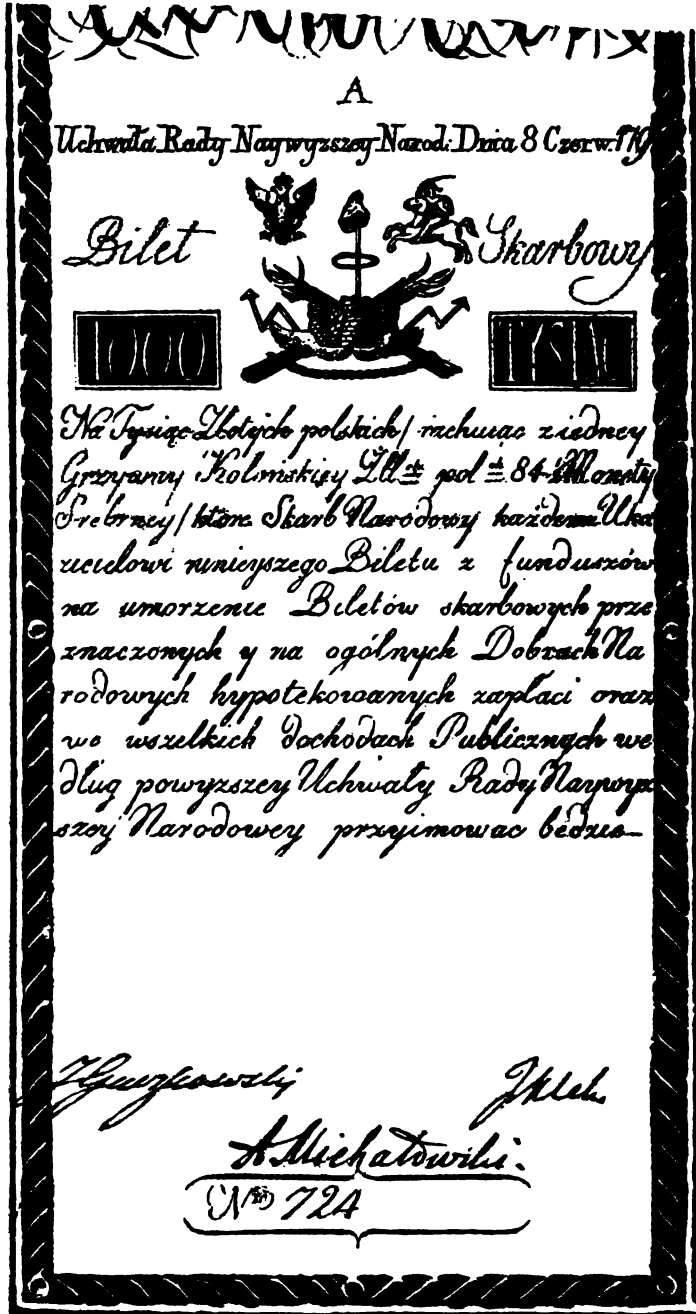 A
Uchwała Rady Naywyzszey Narod: Dnia 8 Czerw. 179
Bilet Skarbowy
1000
Na Tysiąc Złotych polskich / rachuiąc z iedney
Grzywny Kolonskiey Zł pol 84 Monety
Srebrney / ktore Skarb Narodowy każdemu Uka
zicielowi ninieyszego Biletu z funduszów
na umorzenie Biletów skarbowych prze
znaczonych y na ogólnych Dobrach Na
rodowych hypotekowanych zapłaci oraz
we wszelkich dochodach Publicznych we
dług powyzszey Uchwały Rady Naywyz
szey Narodowey przyimowac bedzie
A Michałowski.
N 724